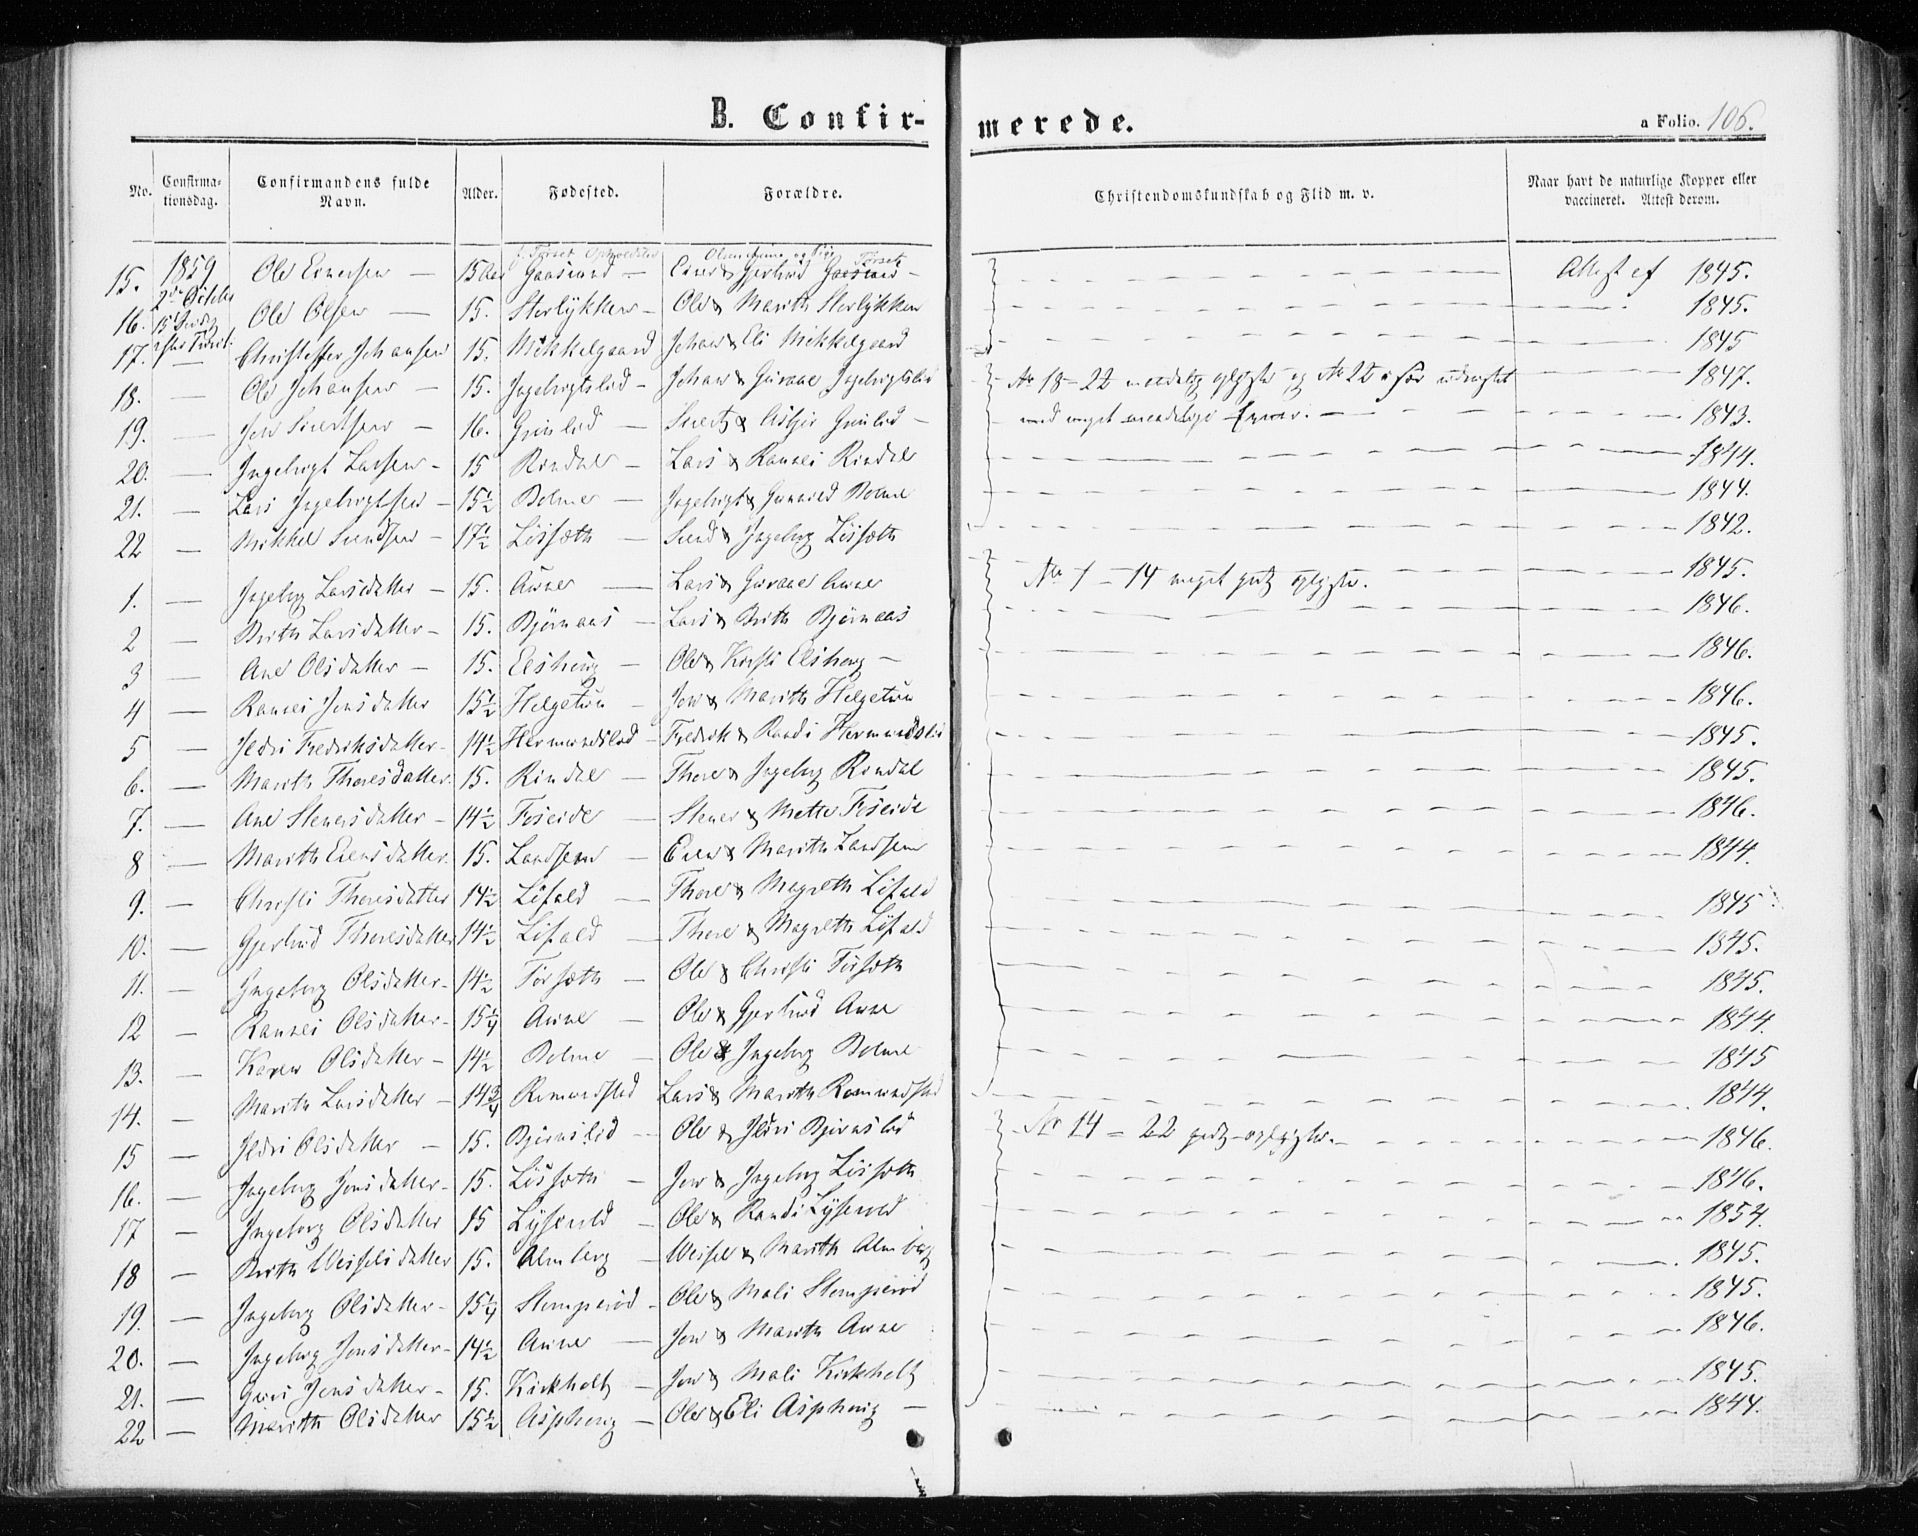 B. Confir-
merede.
a Folio. 106.
No. Confirma-tionsdag. Confirmandens fulde Navn. Alder. Fødested. Forældre. Christendomskundskab og Flid m. v. Naar havt de naturlige Kopper eller vaccineret. Attest derom.
15. 1859 Ole — 15 Aar — 1845.
16. Ole Olsen — 15. Storlykken — Ole & Marith Storlykken 1845.
17. — Christoffer Johansen 15. Mikkelgaard Johan & Eli Mikkelgaard 1845
18. — Ole Johansen — 15. Johan & Guruae No 18–22 No 22 1847.
19. — Jon Sivertsen — 16. Grinlid — Sivert & Grinlid — 1843.
20. — Ingebrigt Larsen — 15 Rindal — Lars & Rannei Rindal 1844.
21. — Lars Ingebrigtsen — 15½ Bolme — Ingebrigt & Gunnild Bolme 1844.
22 — Mikkel Svendsen — 17½ Løsseth — Svend & Ingeborg Løsseth 1842.
1. — Ingeborg Larsdatter — 15. Aune — Lars & Aune No 1–14 meget godt oplyste. 1845.
2 — Brith Larsdatter — 15. Bjørnaas — Lars & Brith Bjørnaas 1846.
3 — Ane Olsdatter — 15. Elshoug — Ole & Kirsti Elshoug — 1846.
4 — Rannei Jonsdatter 15½ Helgetun — Jon & Marith Helgetun 1846.
5 — Ildri Fredriksdatter — 14½ Hermundslid — Fredrik & Randi Hermundslid 1845.
6. — Marith Thoresdatter. 15. Rindal — Thore & Ingeborg Rindal 1845.
7. — Ane Stenersdatter — 14½ Foseide — Stener & Mette Foseide 1846.
8 — Marith Evensdatter. 15. Landsem — Even & Marith Landsem 1844.
9. — Christi Thoresdatter 14½ Løfald — Thore & Magreth Løfald 1845
10. — Gjertrud Thoresdatter 14½ Løfald — Thore & Magreth Løfald 1845.
11. — Ingeborg Olsdatter — 14½ Törseth — Ole & Christi Törseth 1845.
12 — Rannei Olsdatter — 15¼ Aune — Ole & Gjertrud Aune 1844.
13. — Karen Olsdatter — 14½ Bolme — Ole & Ingeborg Bolme 1845
14. — Marith Larsdatter — 14¾ Romundstad Lars & Marith Romundstad 1844.
15 — Ildri Olsdatter — 15. Bjørnslid — Ole & Ildri Bjørnslid No 14–22 godt oplyste. 1846.
16. — Ingeborg Jonsdatter — 15. Løsseth — Jon & Ingeborg Løsseth 1846.
17 — Ingeborg Olsdatter 15 — Ole & Randi 1854.
18 — Brith Weiselsdatter 15. Almberg — Weisel & Marith Almberg 1845.
19. — Ingeborg Olsdatter — 15¼ Stomprød — Ole & Mali Stomprød 1845.
20. — Ingeborg Jonsdatter — 14½ Aune — Jon & Marith Aune 1846.
21. — Guri Jonsdatter — 15. Kirkholt — Jon & Mali Kirkholt 1845.
22 — Marith Olsdatter 15½ Asphoug — Ole & Eli Asphoug — 1844.